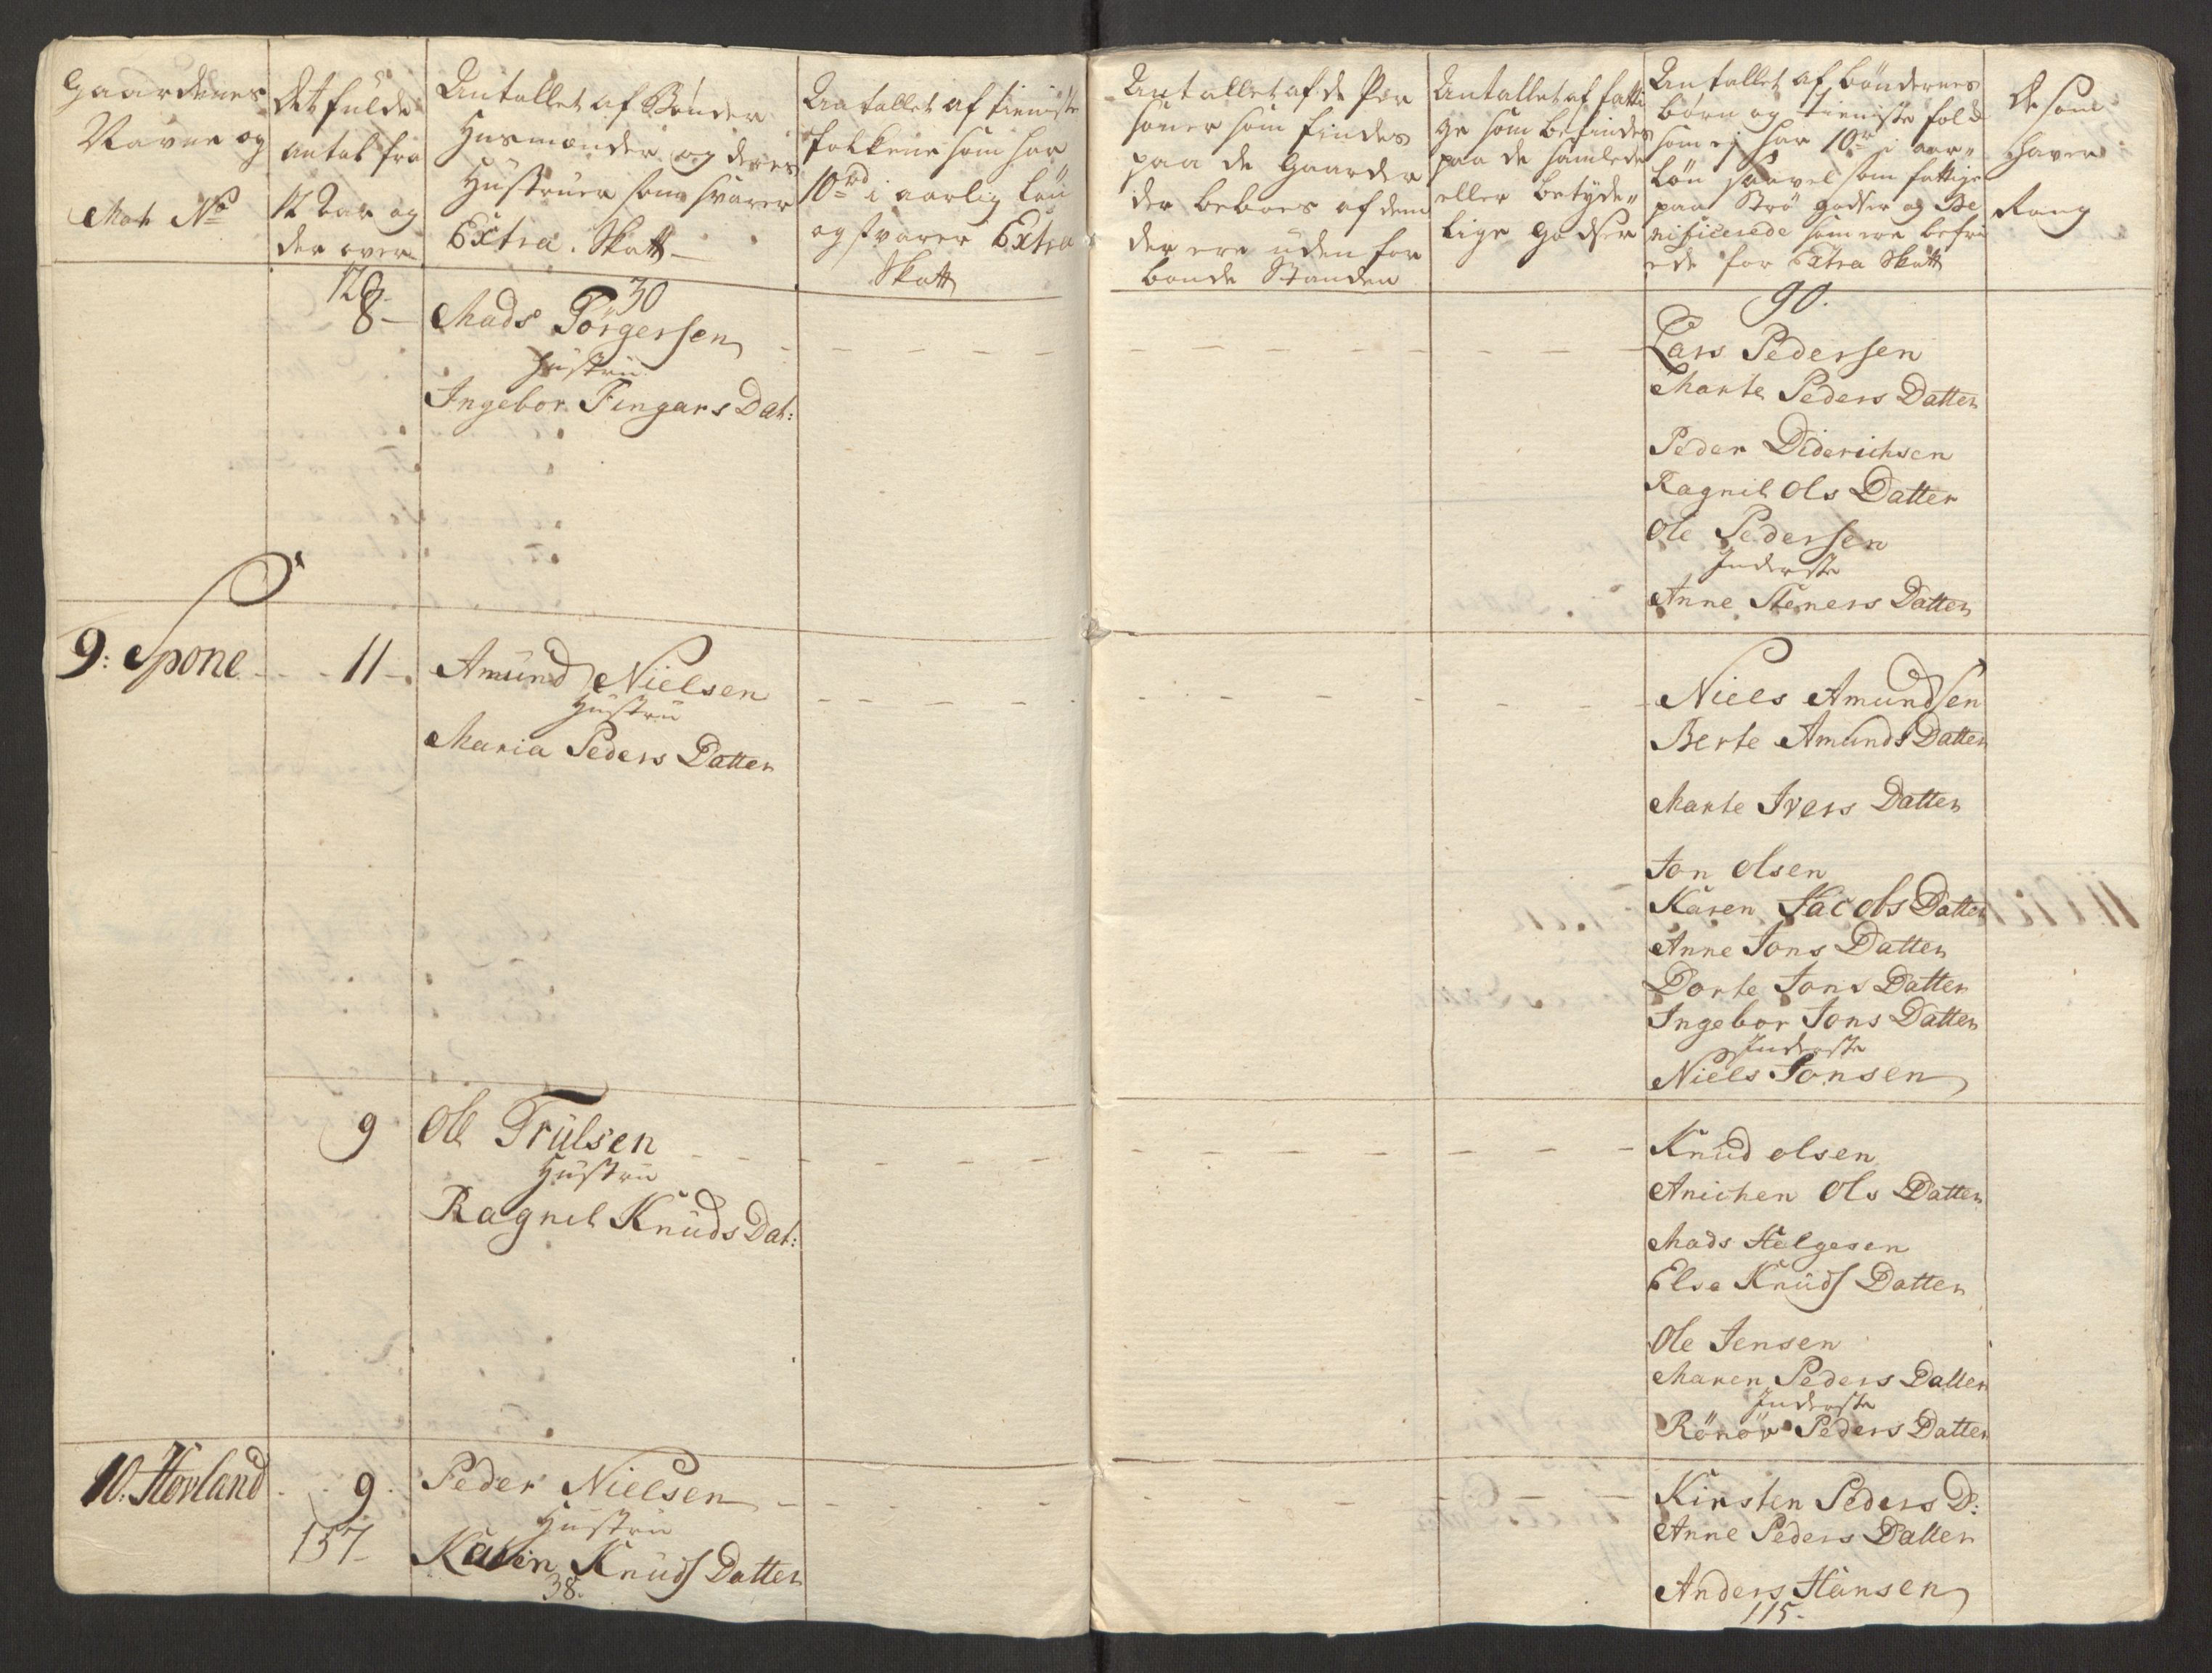 Gaardenes
Navne og
Mat No
Det fulde
antal fra
12 Aar og
der over
Antallet af Bønder
Husmænder og deres
Hustruer som svarer
Extra Skatt
Antallet af tieniste
folkene som har
10 rd i aarlig Løn
og svarer Extra
Skatt
Antallet af de Per
soner som findes
paa de Gaarder
der beboes af dem
der ere uden for
bonde Standen
Antallet af fatti
ge som befindes
paa de samlede
eller betyde
lige Godser
Antallet af bøndernes
børn og tieniste folk
som ej har 10 r i aar
Løn saavel som fattige
paa Strø godser og Be
nificerede som ere befri
ede for Extra Skatt
De som
haver
Rang
128
30
90.
8
Mads Törgersen
Hustru
Ingebor Fingars Dat:
Lars Pedersen
Marte Peders Datter
Peder Diderichsen
Ragnil Ols Datter
Ole Pedersen
Inderste
Anne Steners Datter
9: Spone
11
Amund Nielsen
Hustru
Maria Peders Datter
Niels Amundsen
Berte Amunds Datter
Marte Ivers Datter
Jon Olsen
Karen Jacobs Datter
Anne Jons Datter
Dorte Jons Datter
Ingebor Jons Datter
Inderste
Niels Jonsen
9
Ole Trulsen
Hustru
Ragnil Knuds Dat:
Knud Olsen
Anichen Ols Datter
Mads Helgesen
Else Knuds Datter
Ole Jensen
Maren Peders Datter
Inderste
Rönöv Peders Datter
10: Hovland
9
137
Peder Nielsen
Hustru
Karen Knuds Datter
38.
Kirsten Peders D:
Anne Peders Datter
Anders Hansen
115.